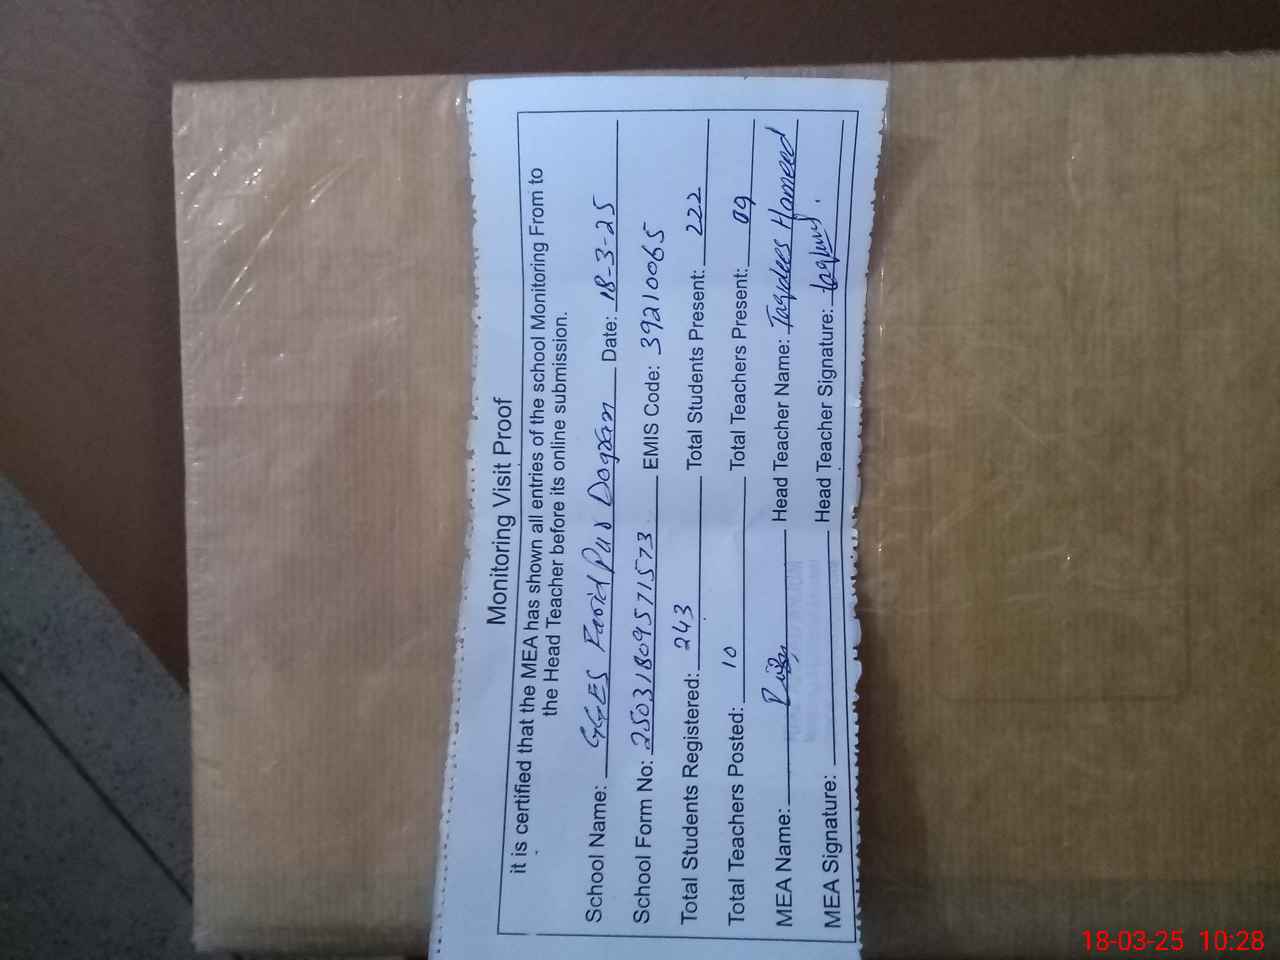 Monitoring Visit Proof
it is certified that the MEA has shown all entries of the school Monitoring From to
the Head Teacher before its online submission.
School Name: GGES Farid Pur Dogran Date: 18-3-25
School Form No: 25031809571573 EMIS Code: 39210065
Total Students Registered: 243 Total Students Present: 222
Total Teachers Posted: 10 Total Teachers Present: 09
MEA Name: Head Teacher Name: Taqdees Hameed
MEA Signature: Head Teacher Signature:
18-03-25 10:28